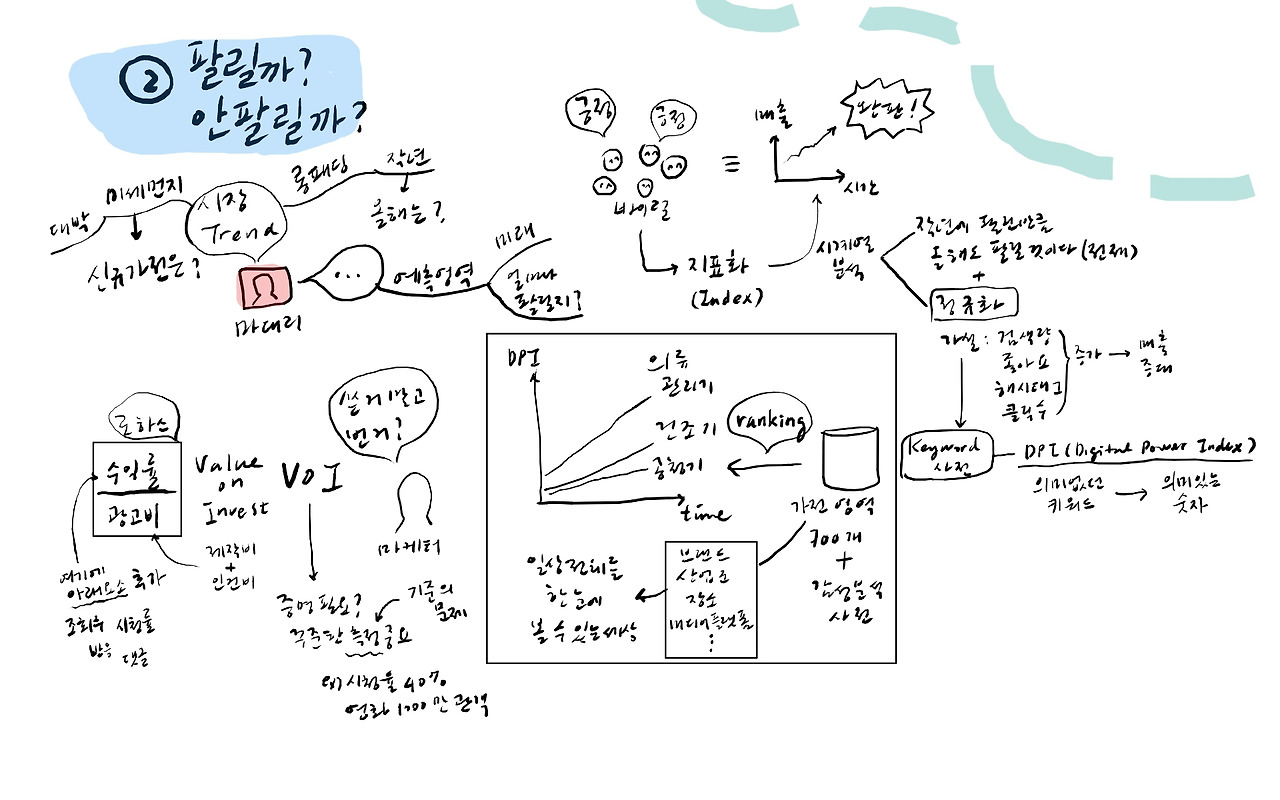 ② 팔릴까?
안팔릴까?
대박
미세먼지
신규가전은?
시장
Trend
롱패딩
작년
올해는?
마대리
...
예측영역
미래
얼마나
팔릴지?
긍정
긍정
바이럴
지표화
(Index)
매출
시간
완판!
시계열
분석
작년에 팔린만큼
올해도 팔릴 것이다 (전제)
+
정규화
가설 : 검색량
좋아요
해시태그
클릭수
증가 → 매출
증대
Keyword
사전
DPI (Digital Power Index)
의미없던
키워드
→ 의미있는
숫자
로하스
수익률
광고비
Value
on
Invest
VOI
제작비
+
인건비
여기에
아래요소 추가
조회수 시청률
반응 댓글
쓴거 말고
번거?
마케터
증명 필요?
꾸준한 측정중요
기준의
문제
ex) 시청률 40%
영화 1000만 관객
DPI
의류
관리기
건조기
청기
time
ranking
가전 영역
700개
+
감성분석
사전
브랜드
산업군
장소
미디어플랫폼
⋮
일상전체를
한눈에
볼 수 있는 세상